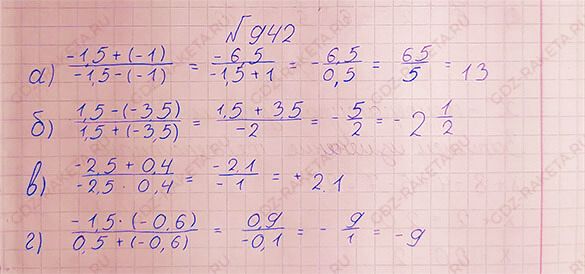 №942
а) (-1,5 + (-1))/(-1,5 - (-1)) = (-6,5)/(-1,5 + 1) = - 6,5/0,5 = 65/5 = 13
б) (1,5 - (-3,5))/(1,5 + (-3,5)) = (1,5 + 3,5)/(-2) = - 5/2 = - 2 1/2
в) (-2,5 + 0,4)/(-2,5 · 0,4) = (-2,1)/(-1) = + 2.1
г) (-1,5 · (-0,6))/(0,5 + (-0,6)) = (0,9)/(-0,1) = - 9/1 = -9
GDZ-RAKETA.RU